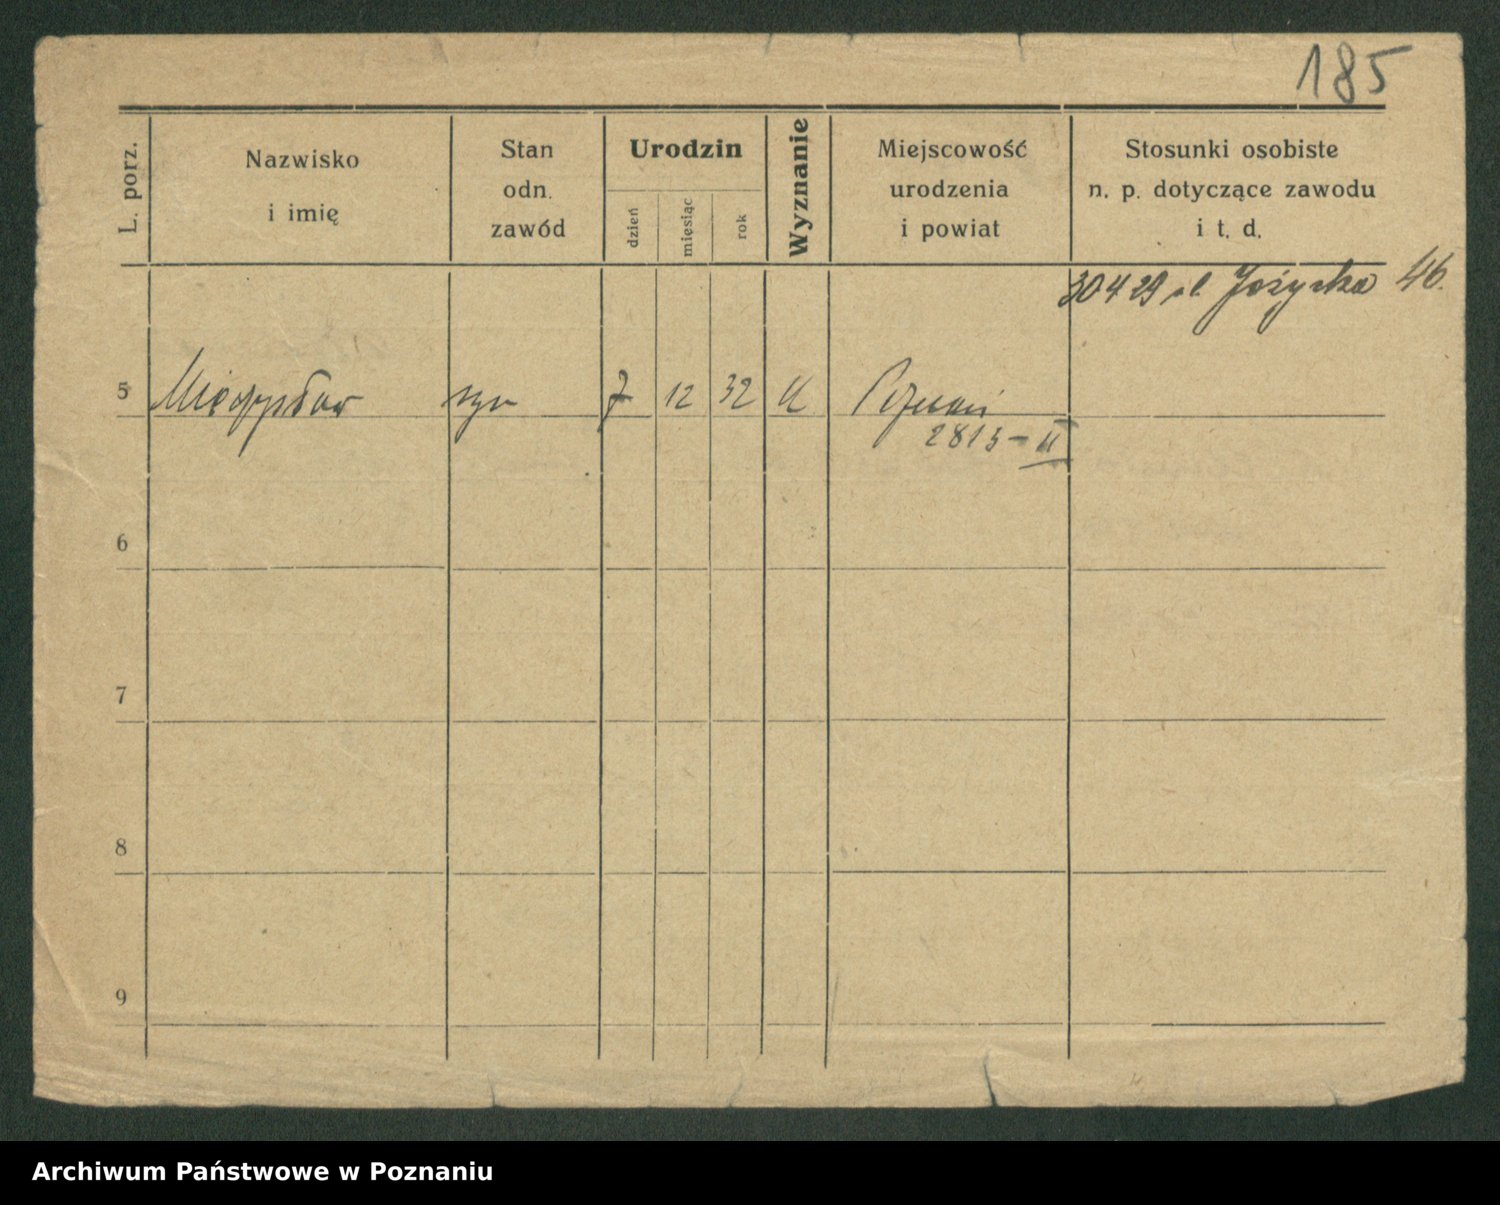 185
L. porz.
Nazwisko
i imię
Stan
odn.
zawód
Urodzin
dzień
miesiąc
rok
Wyznanie
Miejscowość
urodzenia
i powiat
Stosunki osobiste
n. p. dotyczące zawodu
i t. d.
30 4 29 46.
5 Mieczysław syn 7 12 32 K Poznań
2815-II
6
7
8
9
Archiwum Państwowe w Poznaniu